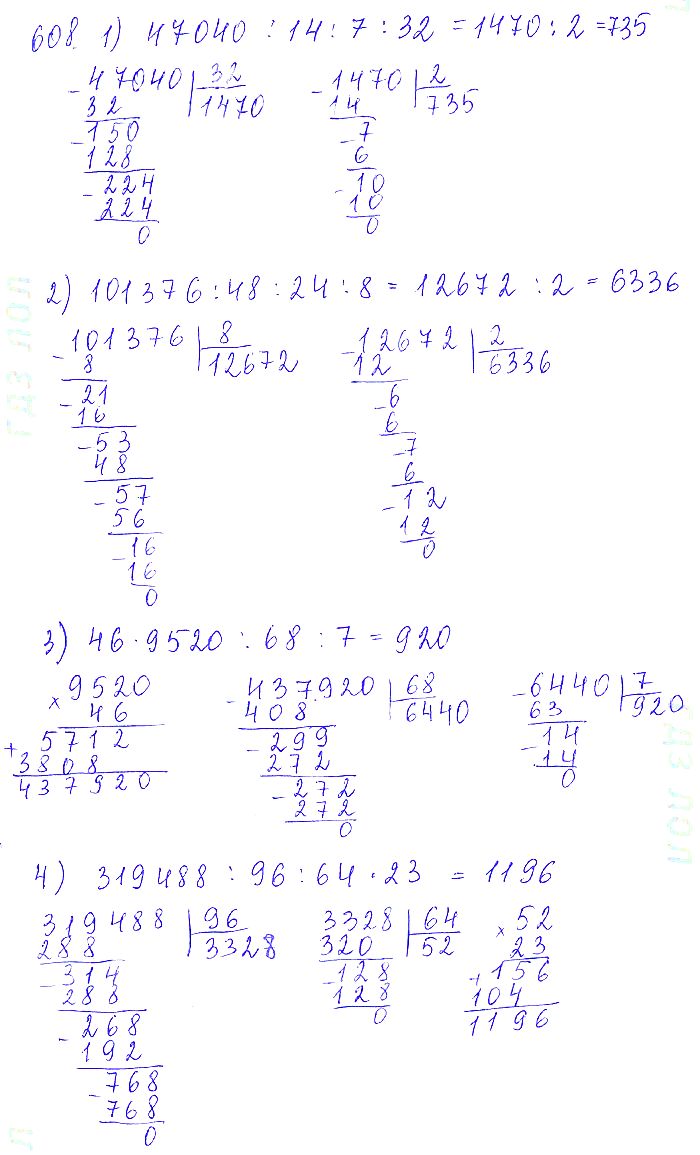 608. 1) 47040 : 14 : 7 : 32 = 1470 : 2 = 735
- 47040 | 32
32 | 1470
- 150
128
- 224
224
0
- 1470 | 2
14 | 735
- 7
6
- 10
10
0
2) 101376 : 48 : 24 : 8 = 12672 : 2 = 6336
- 101376 | 8
8 | 12672
- 21
16
- 53
48
- 57
56
- 16
16
0
- 12672 | 2
12 | 6336
- 6
6
- 7
6
- 12
12
0
3) 46 · 9520 : 68 : 7 = 920
× 9520
46
+ 5712
3808
437920
- 437920 | 68
408 | 6440
- 299
272
- 272
272
0
- 6440 | 7
63 | 920
- 14
14
0
4) 319488 : 96 : 64 · 23 = 1196
319488 | 96
288 | 3328
- 314
288
- 268
192
- 768
768
0
3328 | 64
320 | 52
- 128
128
0
× 52
23
+ 156
104
1196